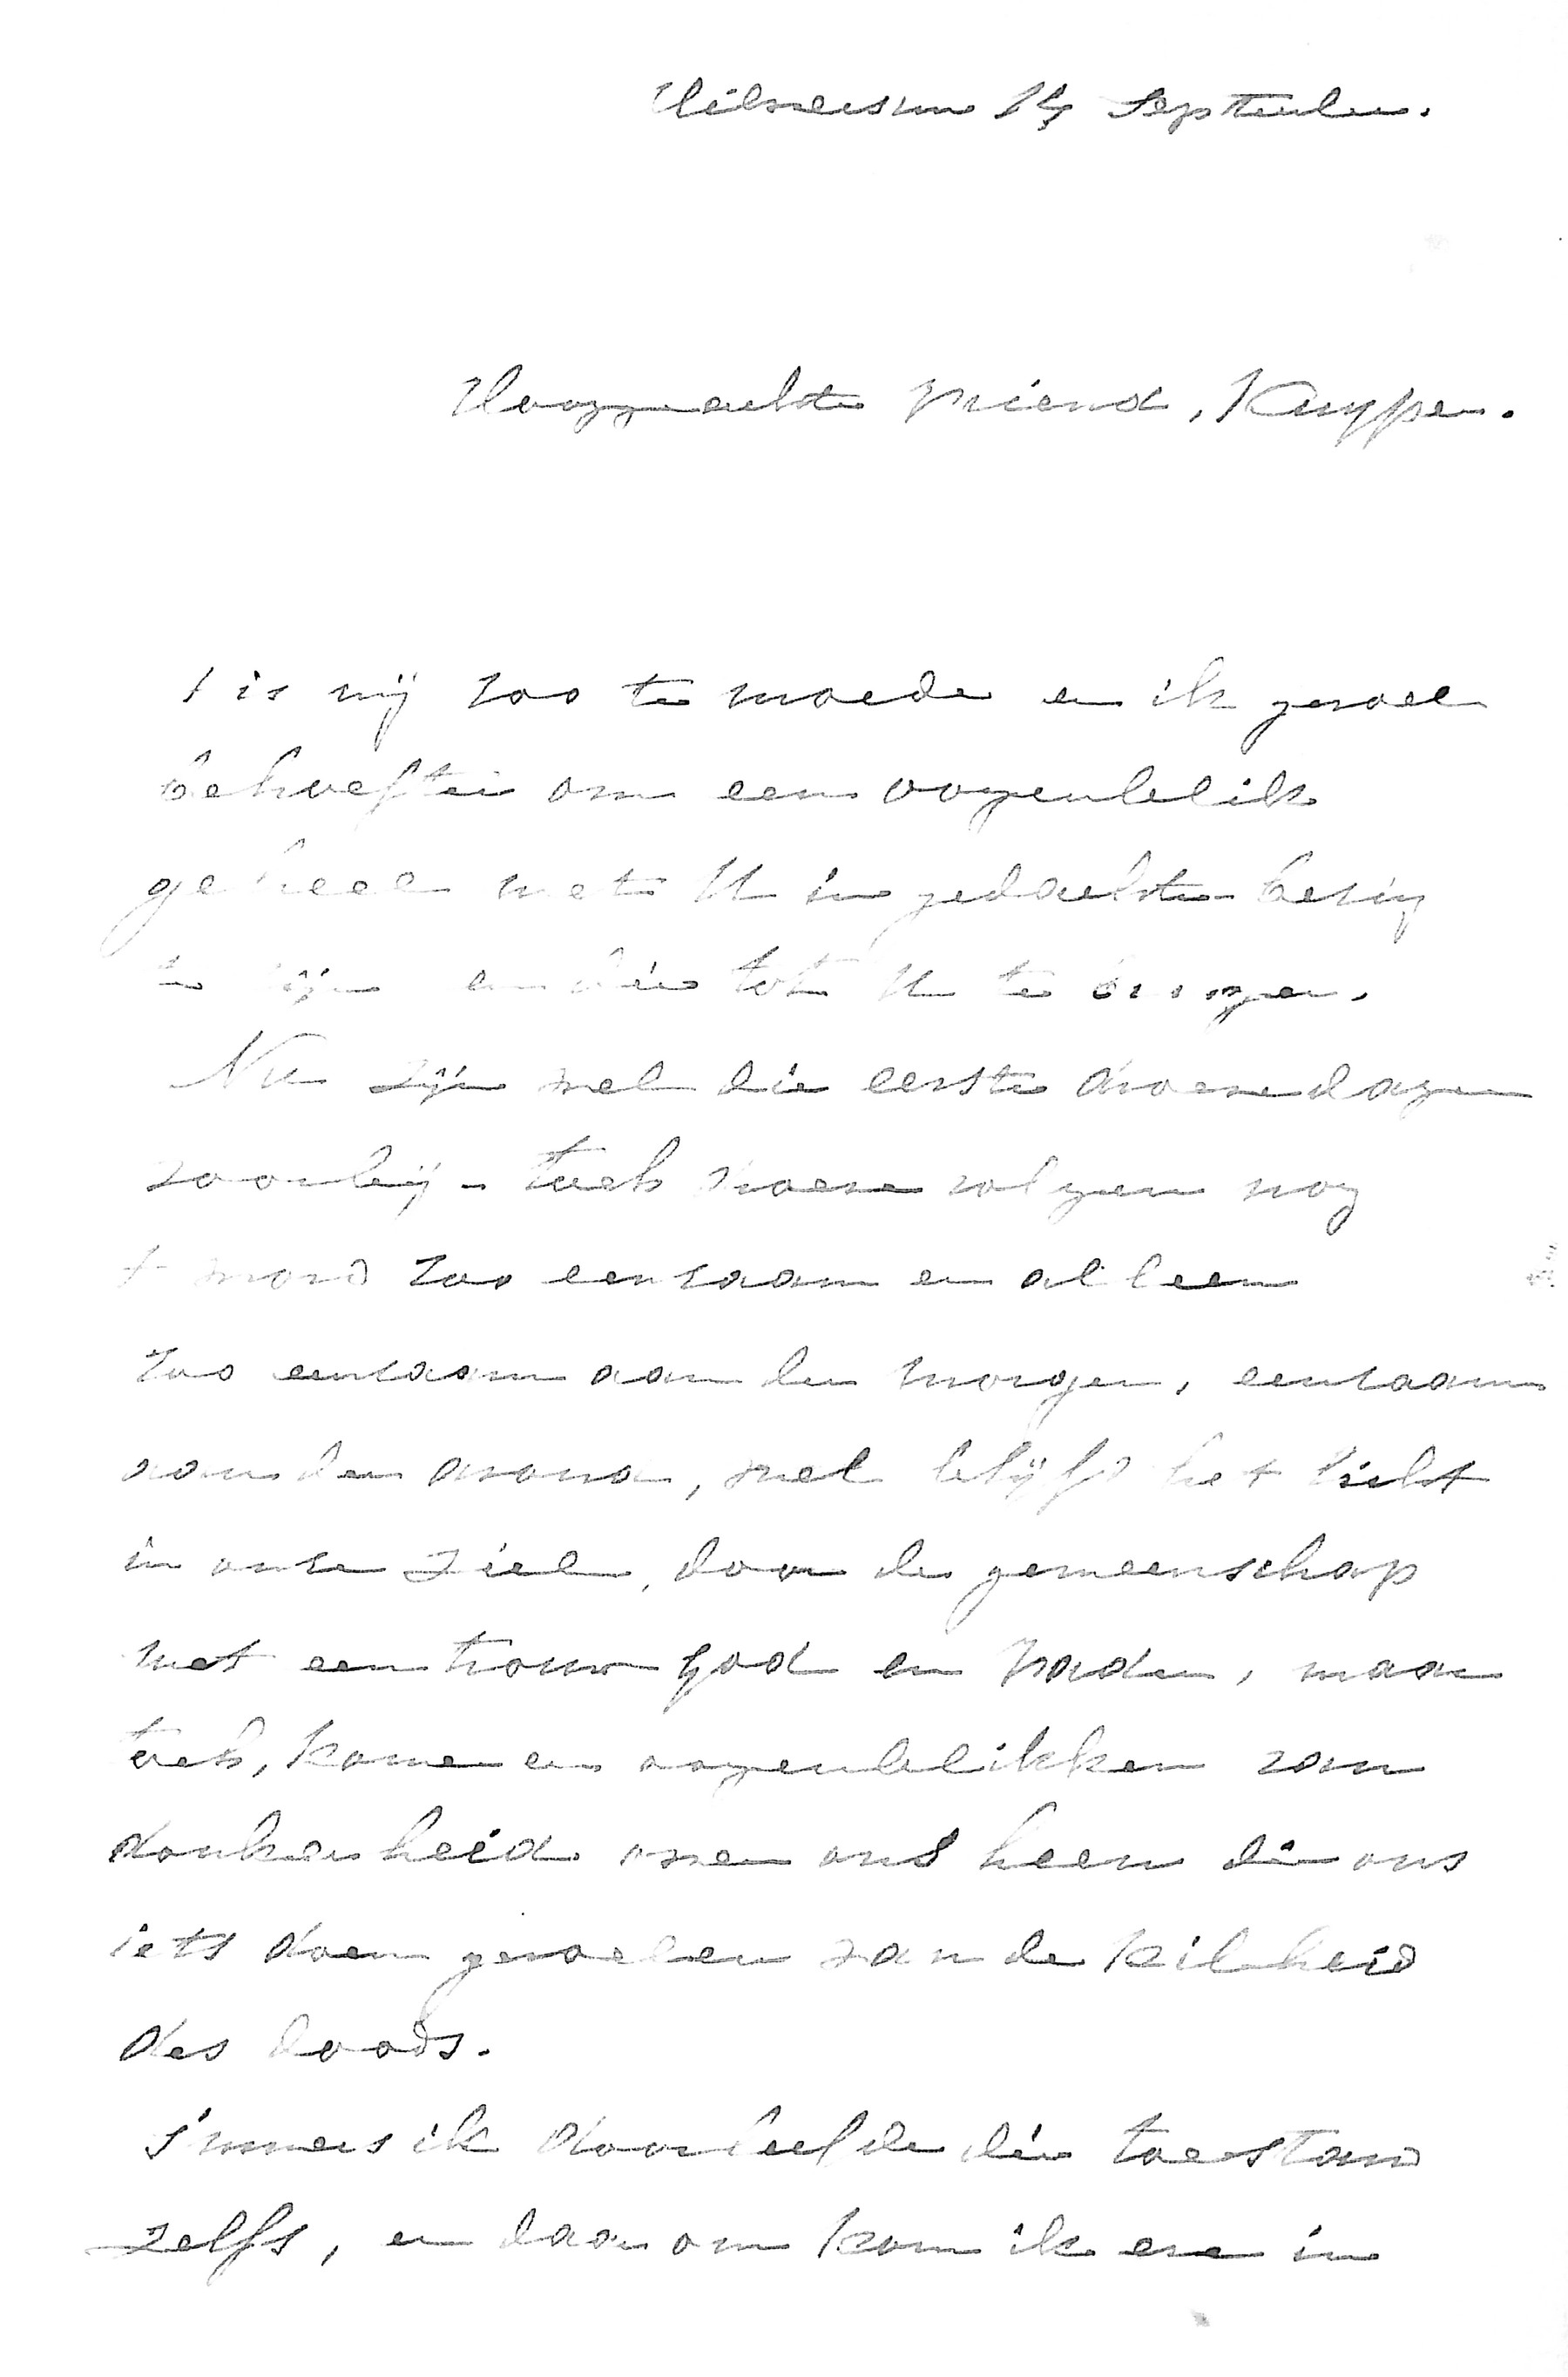 Hilversum 14 September.
Hooggeachte Vriend, Kuyper.
t is mij zoo te moede en ik gevoel
behoefte om een oogenblik
geheel met U in gedachte bezig
te zijn en die tot U te brengen.
Nu zijn wel die eerste droeve dagen
voorbij - toch droeve volgen nog
t word zoo eenzaam en alleen
zoo eenzaam aan den morgen, eenzaam
aan den avond, wel blijft het licht
in onze ziel, door de gemeenschap
met een trouw God en Vader, maar
toch, komen er oogenblikken van
donkerheid over ons heen die ons
iets doen gevoelen van de kilheid
des doods.
Immers ik doorleefde die toestand
zelfs, en daarom kom ik even in